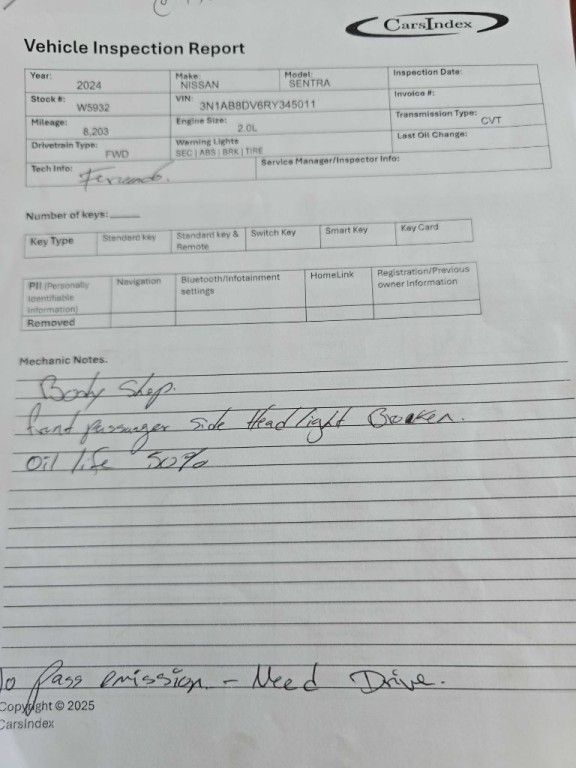 CarsIndex
Vehicle Inspection Report
Year: 2024 Make: NISSAN Model: SENTRA Inspection Date:
Stock #: W5932 VIN: 3N1AB8DV6RY345011 Invoice #:
Mileage: 8,203 Engine Size: 2.0L Transmission Type: CVT
Drivetrain Type: FWD Warning Lights SEC | ABS | BRK | TIRE Last Oil Change:
Tech Info: Service Manager/Inspector Info:
Number of keys:
Key Type Standard key Standard key & Remote Switch Key Smart Key Key Card
PII (Personally Identifiable Information) Navigation Bluetooth/Infotainment settings HomeLink Registration/Previous owner Information
Removed
Mechanic Notes.
Body Shop.
front passanger side Headlight Broken.
Oil life 50%
To Pass emission - Need Drive.
Copyright © 2025
CarsIndex